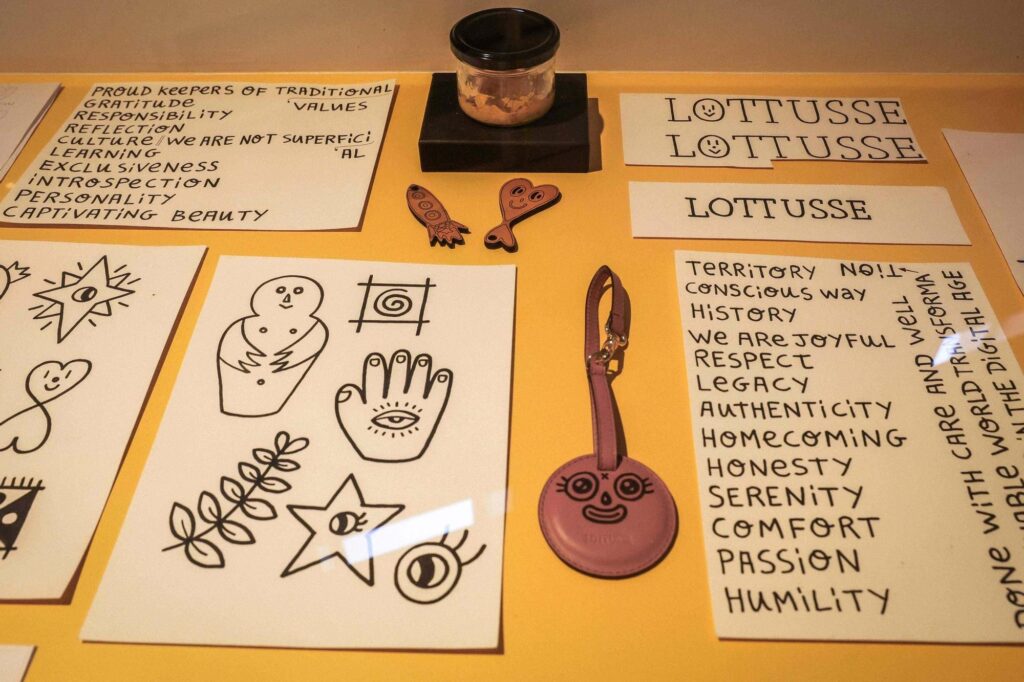 PROUD KEEPERS OF TRADITIONAL
GRATITUDE 'VALUES
RESPONSIBILITY
REFLECTION
CULTURE // WE ARE NOT SUPERFICI
LEARNING 'AL
EXCLUSIVENESS
INTROSPECTION
PERSONALITY
CAPTIVATING BEAUTY
LOTTUSSE
LOTTUSSE
LOTTUSSE
TERRITORY
CONSCIOUS WAY
HISTORY
WE ARE JOYFUL
RESPECT
LEGACY
AUTHENTICITY
HOMECOMING
HONESTY
SERENITY
COMFORT
PASSION
HUMILITY
DONE WITH CARE AND WELL
WORLD TRANSFORMA
TION
ABLE WORLD
IN THE DIGITAL AGE